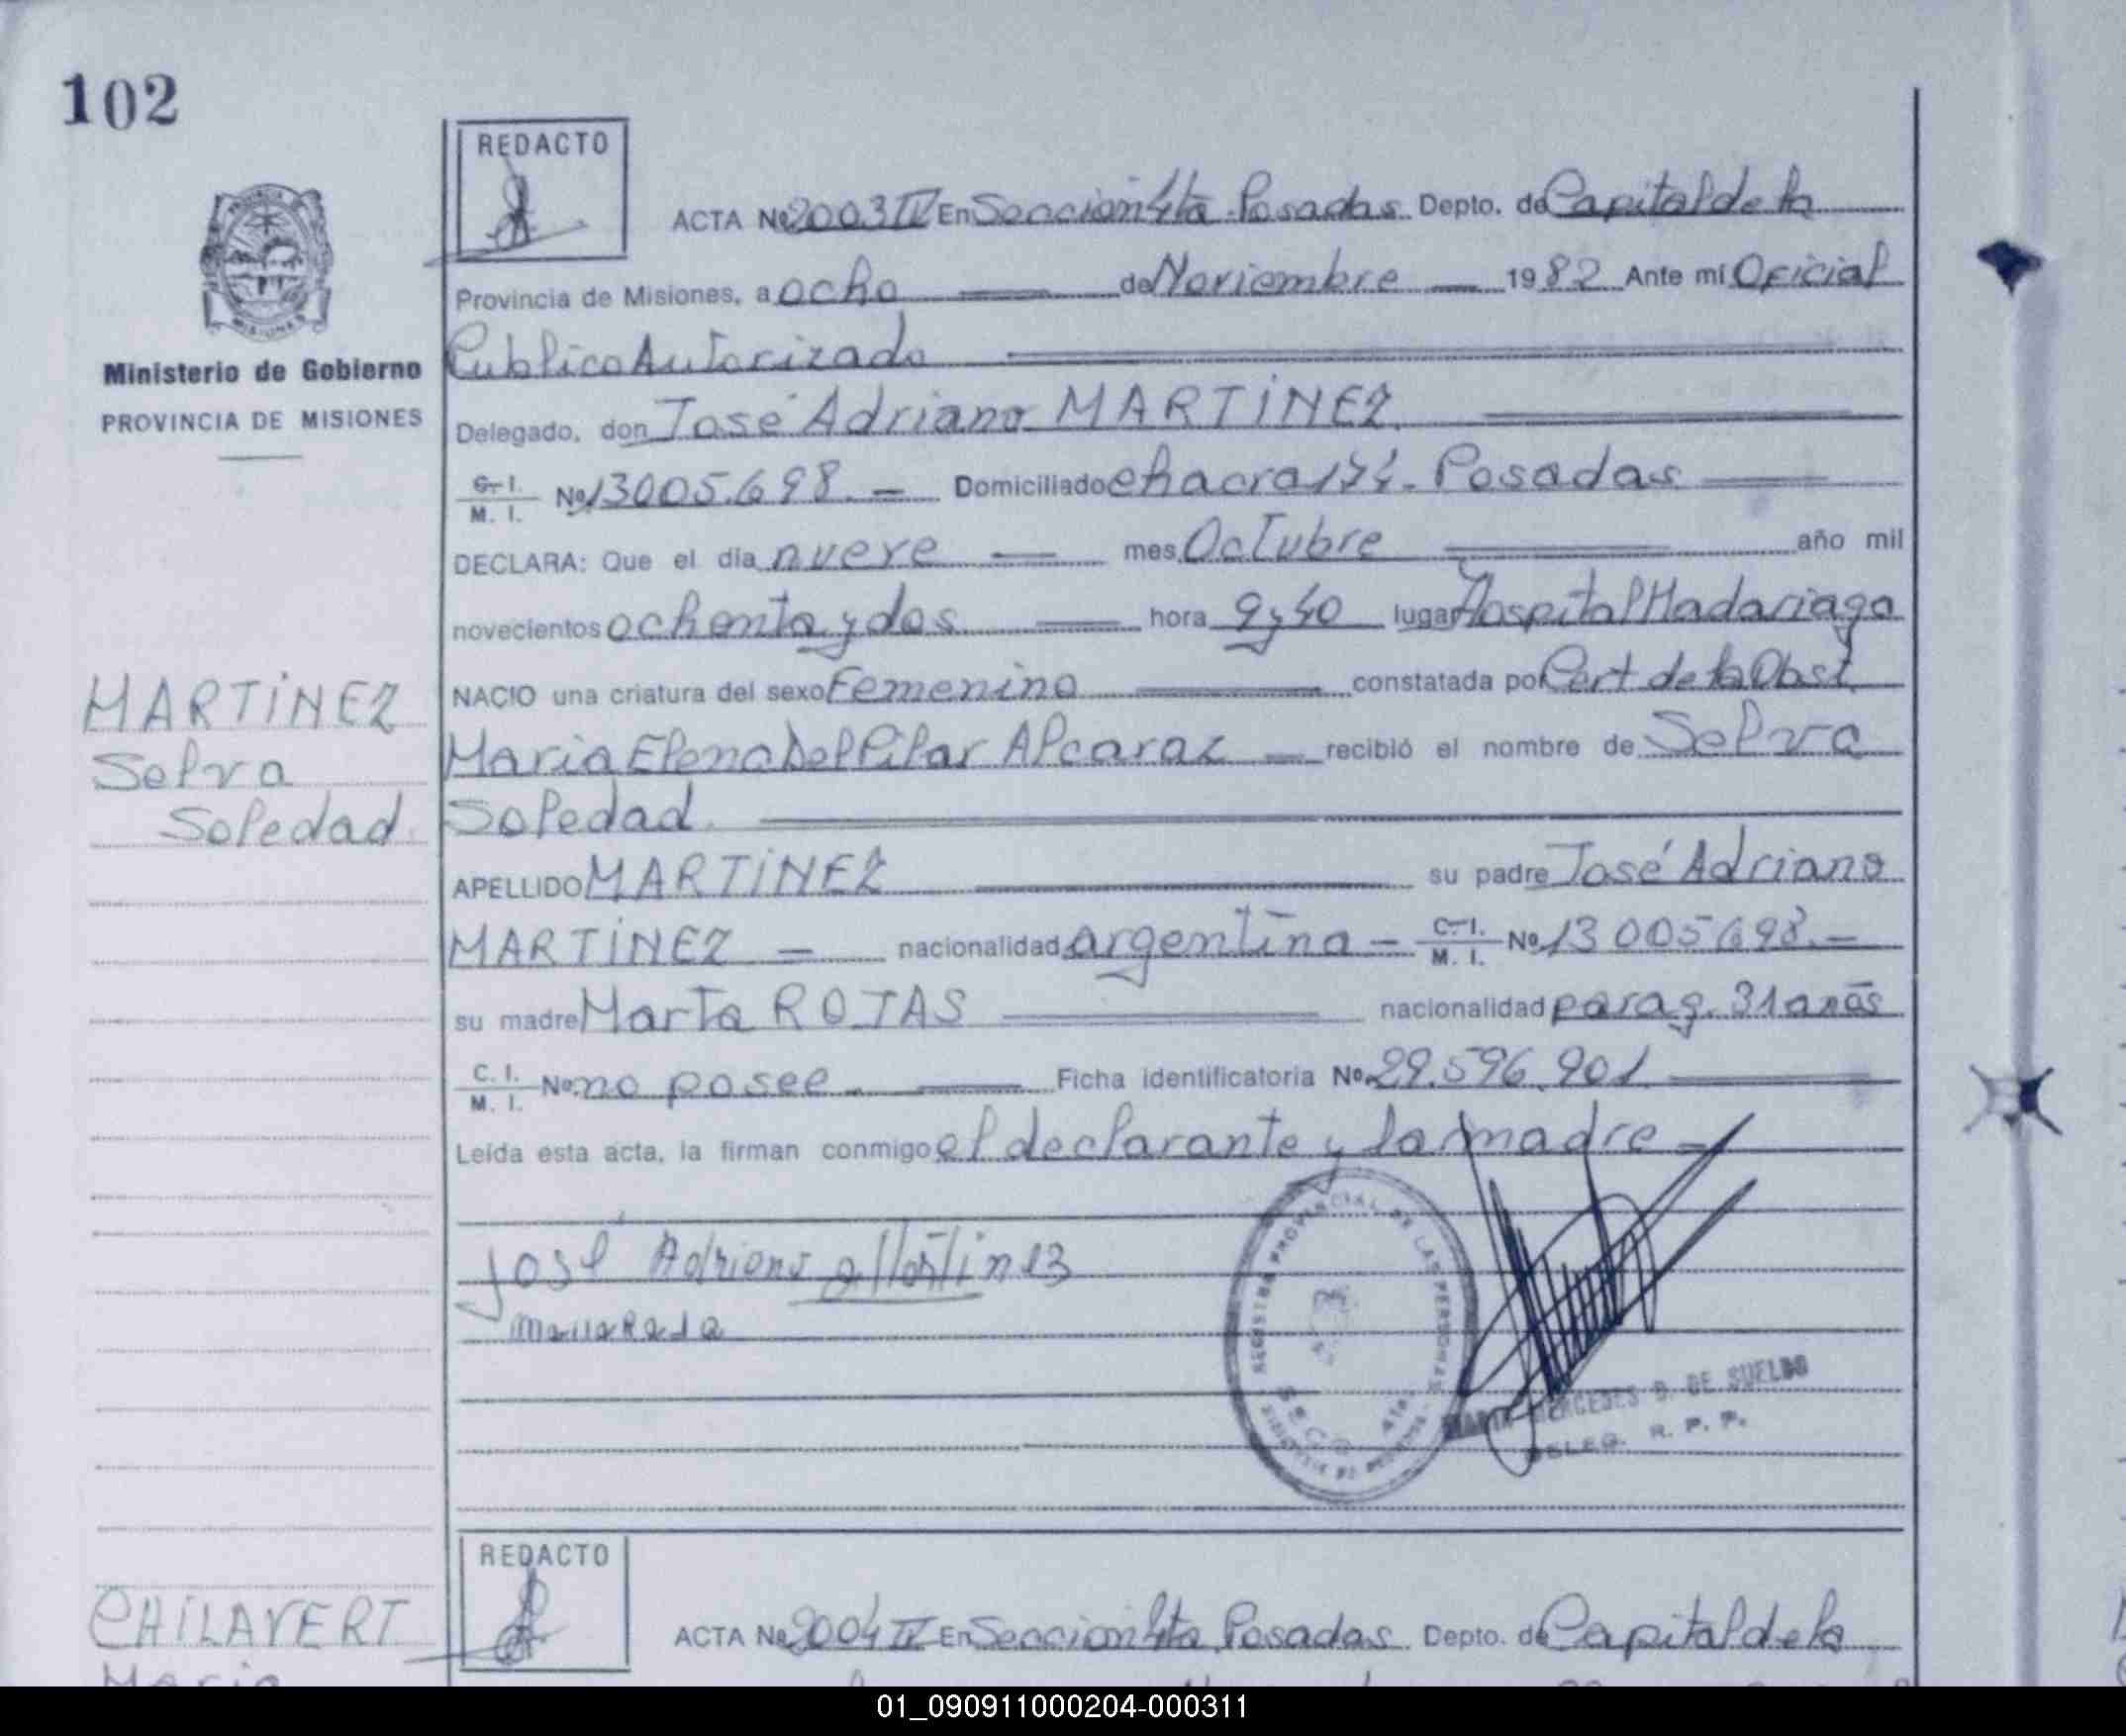 102
REDACTO
ACTA Nº 2003 IV En Sección 4ta Posadas Depto. de Capital de la
Provincia de Misiones, a ocho de Noviembre 1982 Ante mí Oficial
Publico Autorizado
Ministerio de Gobierno
PROVINCIA DE MISIONES
Delegado, don José Adriano MARTINEZ
C. I. M. I. Nº 13005.698.- Domiciliado chacra 171. Posadas
DECLARA: Que el día nueve mes Octubre año mil
novecientos ochenta y dos hora 9 y 40 lugar Hospital Madariaga
NACIO una criatura del sexo Femenino constatada por Cert de la Obst
MARTINEZ
Selva
Soledad.
Maria Elena Del Pilar Alcaraz recibió el nombre de Selva
Soledad.
APELLIDO MARTINEZ su padre José Adriano
MARTINEZ nacionalidad argentina C. I. M. I. Nº 13005698.-
su madre Marta ROJAS nacionalidad parag. 31 años
C. I. M. I. Nº no posee. Ficha identificatoria Nº 29.596.901
Leída esta acta, la firman conmigo el declarante y la madre
José Adriano Martinez
REGISTRO PROVINCIAL DE LAS PERSONAS
MERCEDES B. DE SUELDO
DELEG. R. P. P.
REDACTO
CHILAVERT
Maria
ACTA Nº 2004 IV En Sección 4ta Posadas Depto. de Capital de la
01_090911000204-000311